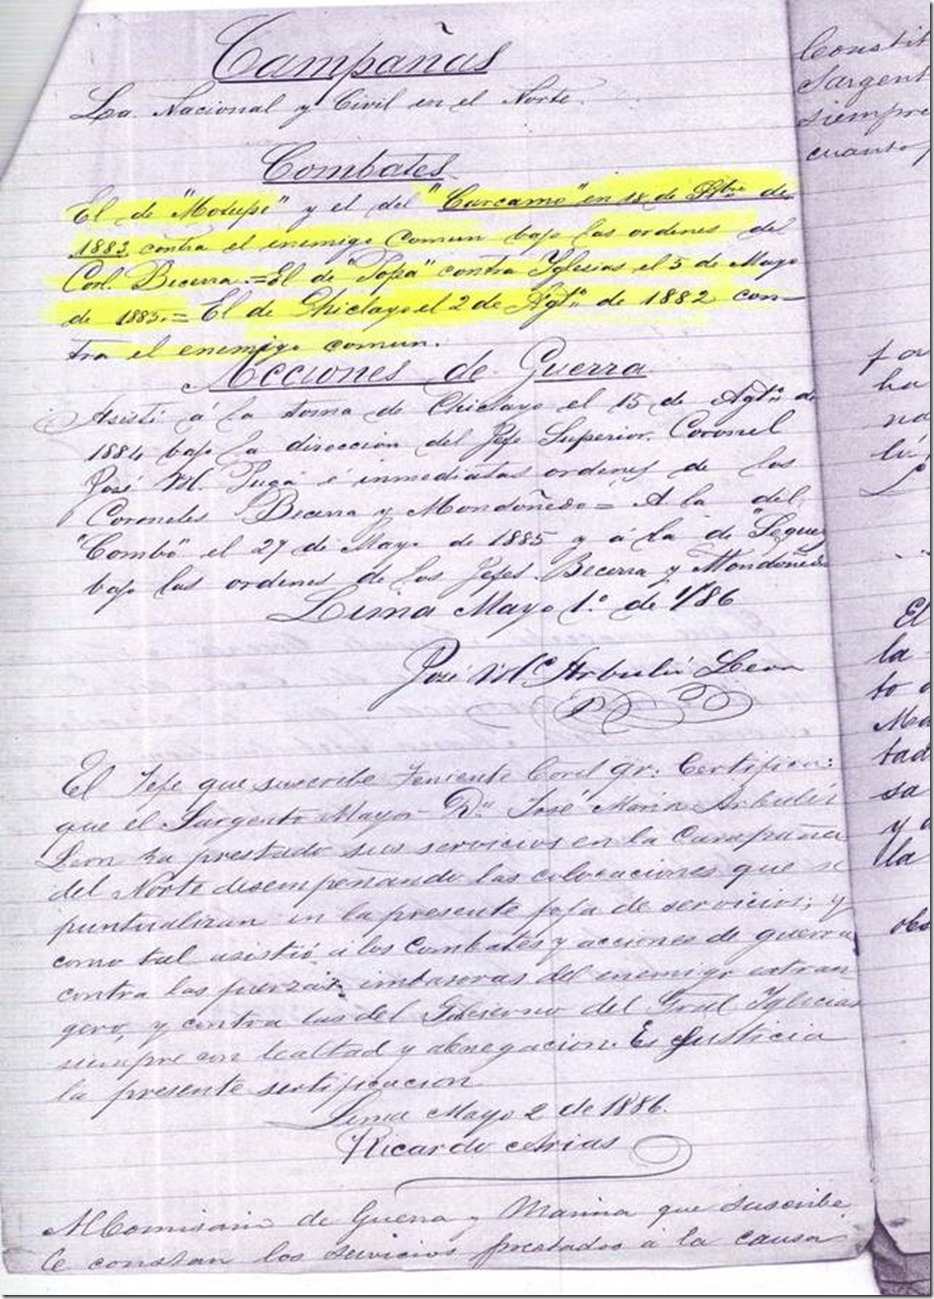 Campañas
La Nacional y Civil en el Norte.
Combates
El de "Motupe" y el del "Carcamo" en 18 de Stbre de
1883 contra el enemigo comun bajo las ordenes del
Corl. Becerra.= El de "Popa" contra Iglesias el 5 de Mayo
de 1885.= El de Chiclayo el 2 de Agto de 1882 con-
tra el enemigo comun.
Acciones de Guerra
Asistí á la toma de Chiclayo el 15 de Agto de
1884 bajo la direccion del Jefe Superior. Coronel
José M. Puga é inmediatas ordenes de los
Coroneles Becerra y Mondoñedo = A la del
"Combo" el 27 de Mayo de 1885 y á la de "Seque
bajo las ordenes de los Jefes Becerra y Mondoñedo
Lima Mayo 1.º de 1/86
José Mª Arbulú Leon
El Jefe que suscribe Teniente Corel gr: Certifica:
que el Sargento Mayor Dn José Maria Arbulú
Leon ha prestado sus servicios en la Campaña
del Norte desempeñando las colocaciones que se
puntualizan en la presente foja de servicios; y
como tal asistió á los Combates y acciones de guerra
contra las fuerzas imbasoras del enemigo extran
gero, y contra las del Gobierno del Gral Iglesias
siempre con lealtad y abnegacion. Es Justicia
la presente sertificacion
Lima Mayo 2 de 1886.
Ricardo Arias
Al Comisario de Guerra y Marina que suscribe
le constan los servicios prestados á la causa
Constit
Sargent
siempre
cuanto
El
la
to
tad
sa
y
la